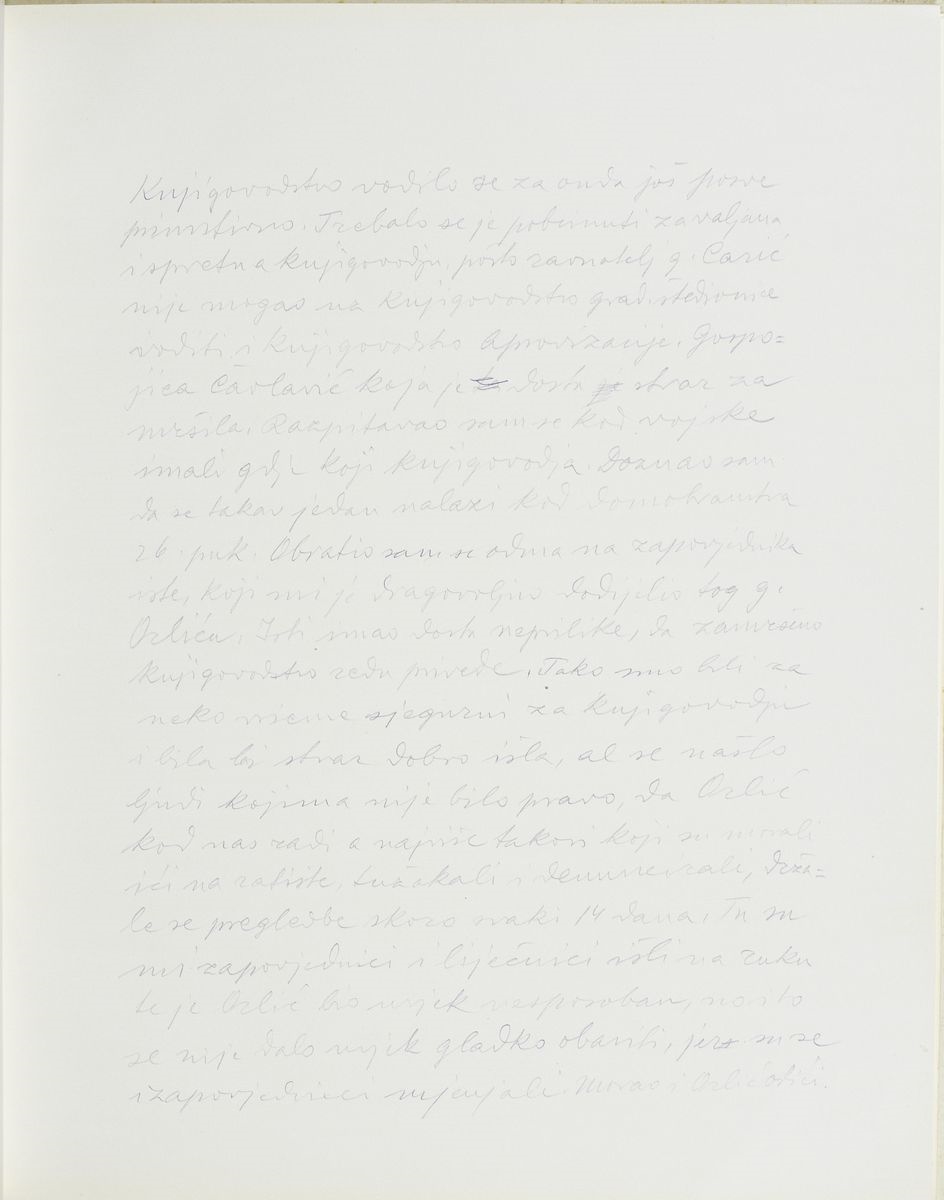 Knjigovodstvo vodilo se za onda još posve
primitivno. Trebalo se je pobrinuti za valjana
i spretna knjigovodju, pošto ravnatelj g. Carić
nije mogao uz knjigovodstvo grad. štedionice
voditi i knjigovodstvo Aprovizacije. Gospo=
jica Čavlavić koja je dosta stvar za
mršila. Razpitavao sam se kod vojske
imali gdje koji knjigovodja. Doznao sam
da se takav jedan nalazi kod domobranstva
26. puk. Obratio sam se odma na zapovjednika
iste, koji mi je dragovoljno dodijelio tog g.
Orlića. Isti imao dosta neprilike, da zamršeno
knjigovodstvo redu privede. Tako smo bili za
neko vrieme sjegurni za knjigovodju
i bila bi stvar dobro išla, al se našlo
ljudi kojima nije bilo pravo, da Orlić
kod nas radi a najviše takovi koji su morali
ići na ratište, tužakali i denuncirali, drža=
le se pregledbe skoro svaki 14 dana. Tu su
mi zapovjednici i liječnici išli na ruku
te je Orlić bio uvjek nesposoban, no isto
se nije dalo uvjek gladko obaviti, jer su se
i zapovjednici mjenjali. Morao i Orlić otići.